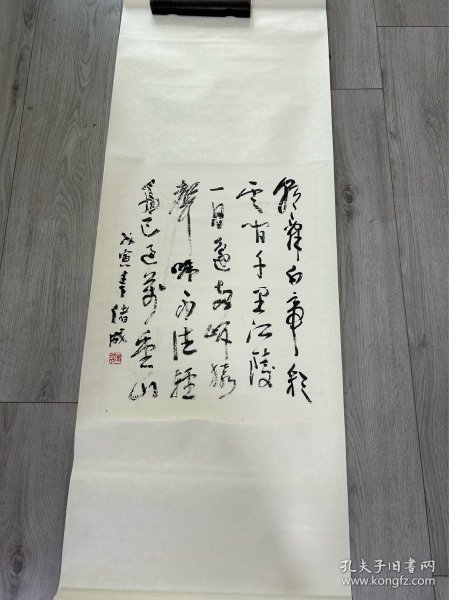 朝辞白帝彩
云间千里江陵
一日还两岸猿
声啼不住轻
舟已过万重山
戊寅春绪成
孔夫子旧书网
www.kongfz.com